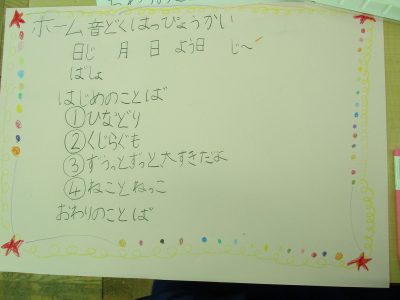 ホーム音どくはっぴょうかい
日じ 月 日 よう日 じ～
ばしょ
はじめのことば
①ひなどり
②くじらぐも
③ずうっとずっと大すきだよ
④ねことねっこ
おわりのことば